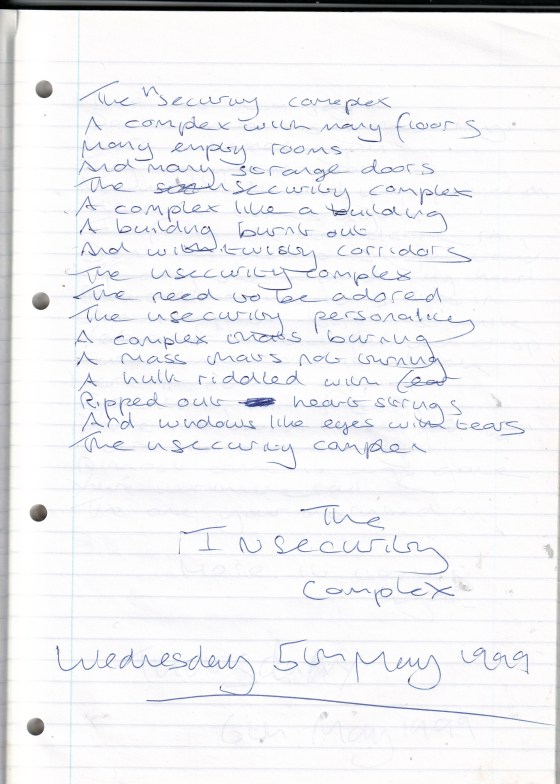 The nsecurity complex
A complex with many floors
Many empty rooms
And many strange doors
The nsecurity complex
A complex like a building
A building burnt out
And with twisty corridors
The nsecurity complex
The need to be adored
The nsecurity personality
A complex thats burning
A mass thats not turning
A hulk riddled with fear
Ripped out heart strings
And windows like eyes with tears
The nsecurity complex
The
INsecurity
Complex
Wednesday 5th May 1999
6th May 1999